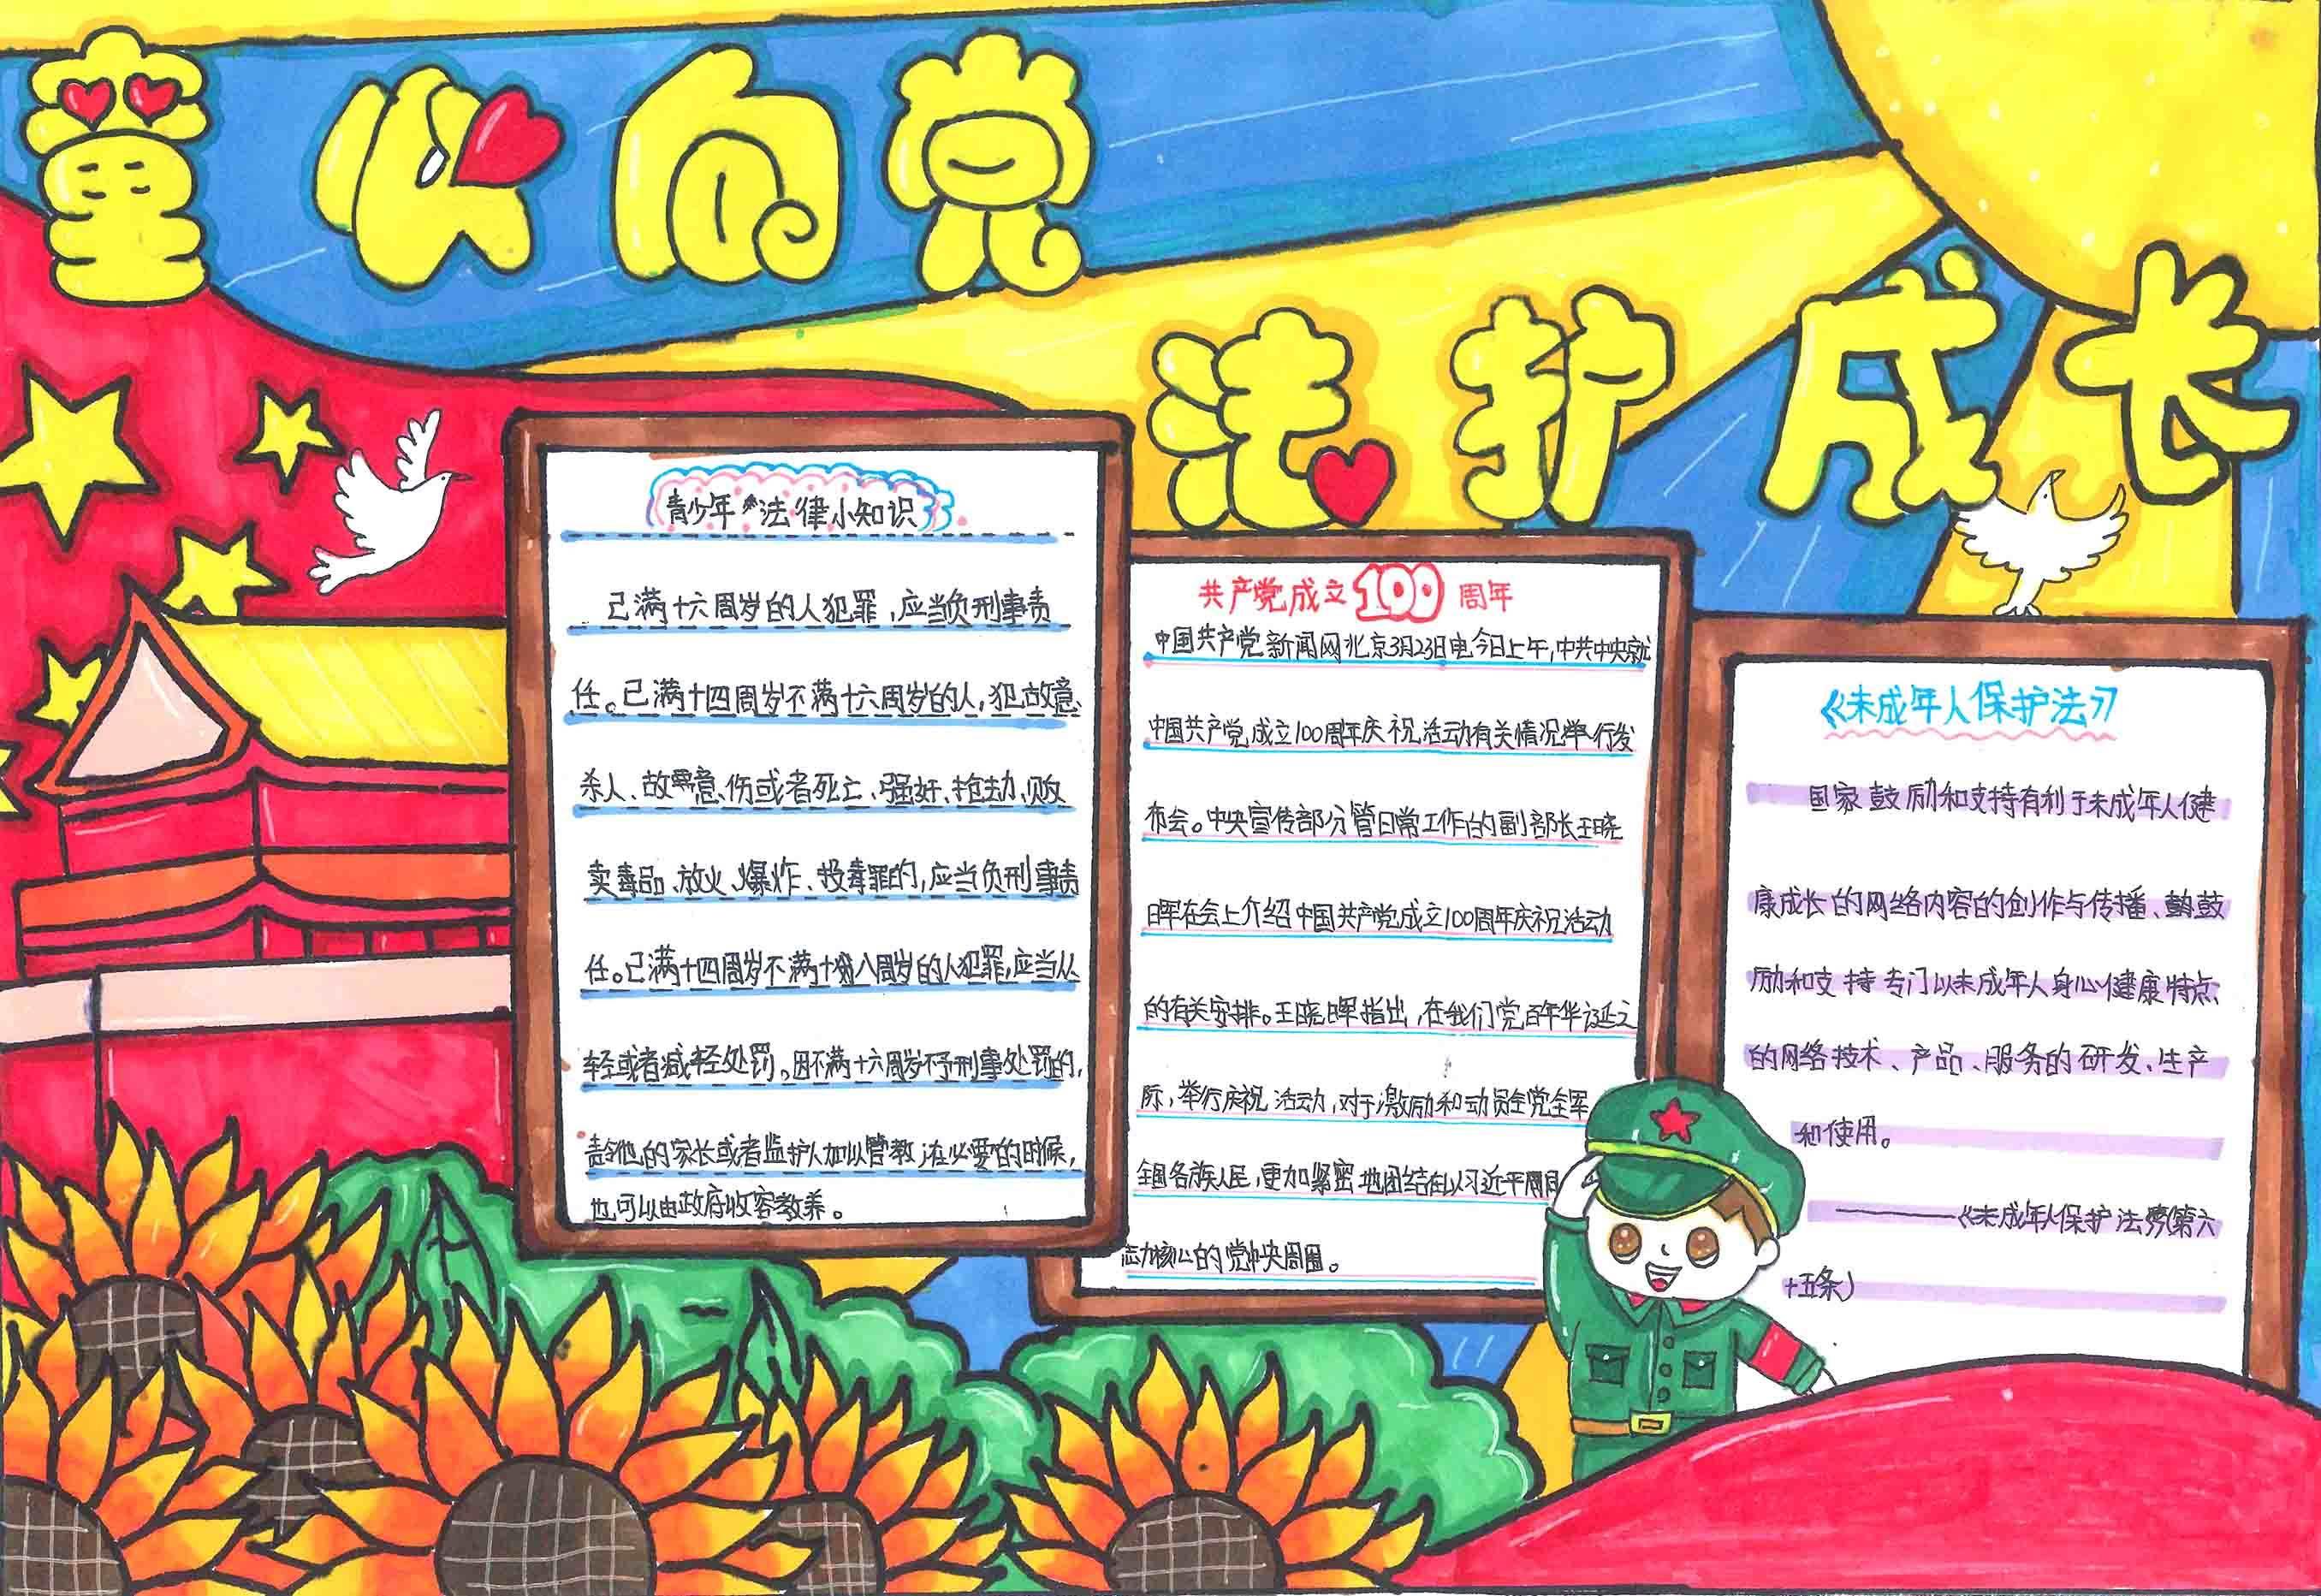 童心向党
法护成长
青少年法律小知识
已满十六周岁的人犯罪,应当负刑事责
任。已满十四周岁不满十六周岁的人,犯故意
杀人、故意伤或者死亡、强奸、抢劫、贩
卖毒品、放火、爆炸、投毒罪的,应当负刑事责
任。已满十四周岁不满十八周岁的人犯罪,应当从
轻或者减轻处罚。因不满十六周岁不予刑事处罚的,
责令他的家长或者监护人加以管教;在必要的时候,
也可以由政府收容教养。
共产党成立100周年
中国共产党新闻网北京3月23日电今日上午,中共中央就
中国共产党成立100周年庆祝活动有关情况举行发
布会。中央宣传部分管日常工作的副部长王晓
晖在会上介绍中国共产党成立100周年庆祝活动
的有关安排。王晓晖指出,在我们党百年华诞之
际,举行庆祝活动,对于激励和动员全党全军
全国各族人民,更加紧密地团结在以习近平同
志为核心的党中央周围。
《未成年人保护法》
国家鼓励和支持有利于未成年人健
康成长的网络内容的创作与传播、鼓
励和支持专门以未成年人身心健康特点
的网络技术、产品、服务的研发、生产
和使用。
——《未成年人保护法》(第六
十五条)